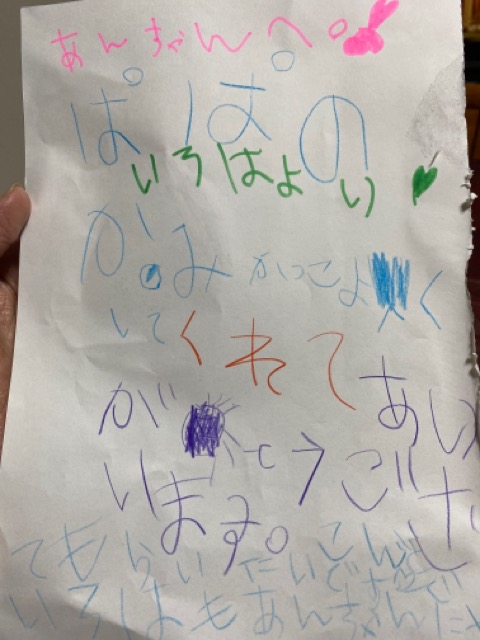 あんちゃんへ。
ぱぱの
いろはより
かみかっこよく
してくれてあり
がとうござ
います。
てもらいたいです
いろはもあんちゃんにや